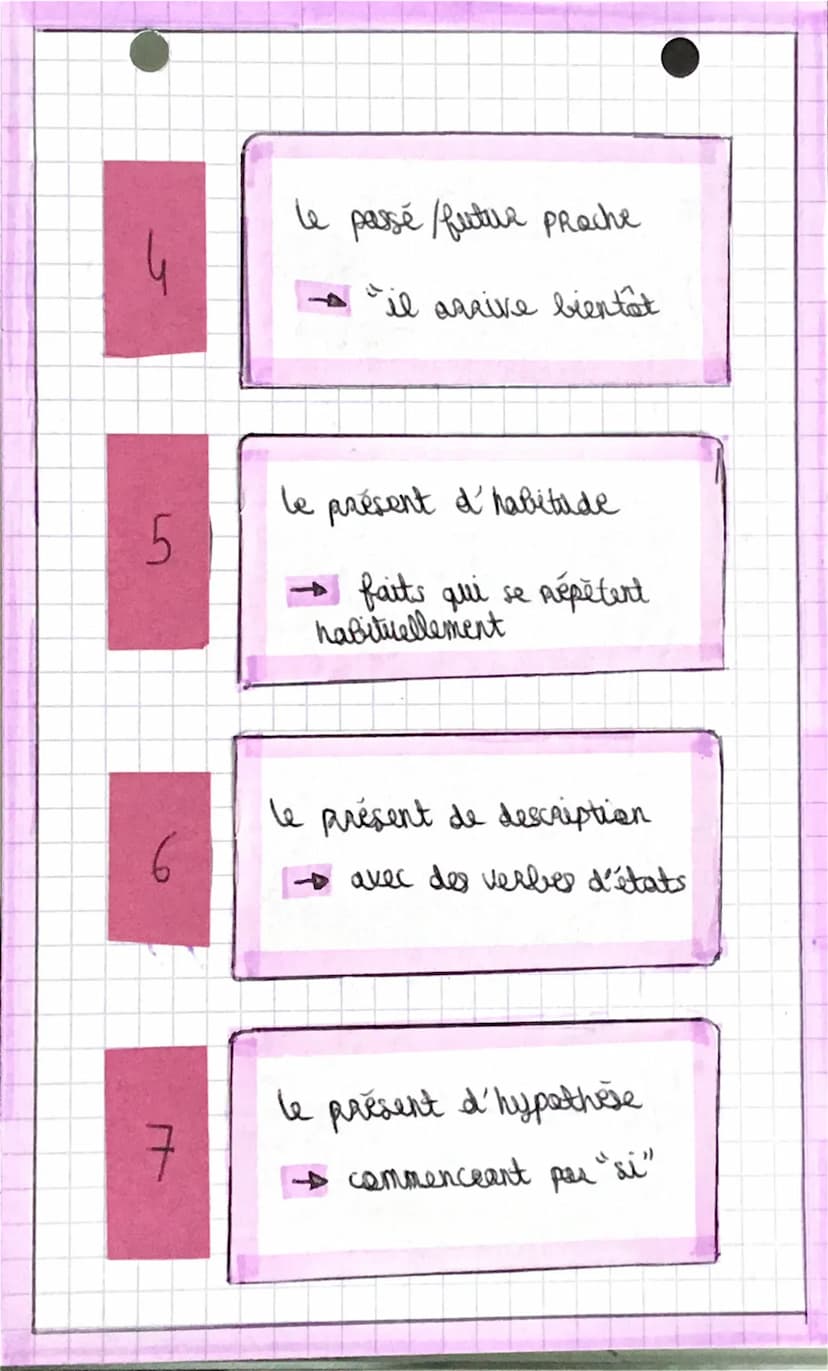 4
le passé /futur proche
→ "il arrive bientôt
5
le présent d'habitude
→ faits qui se répètent
habituellement
6
le présent de description
→ avec des verbes d'états
7
le présent d'hypothèse
→ commenceant par "si"